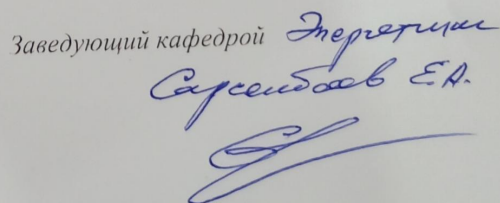 Заведующий кафедрой Энергетики
Сарсенбаев Е.А.